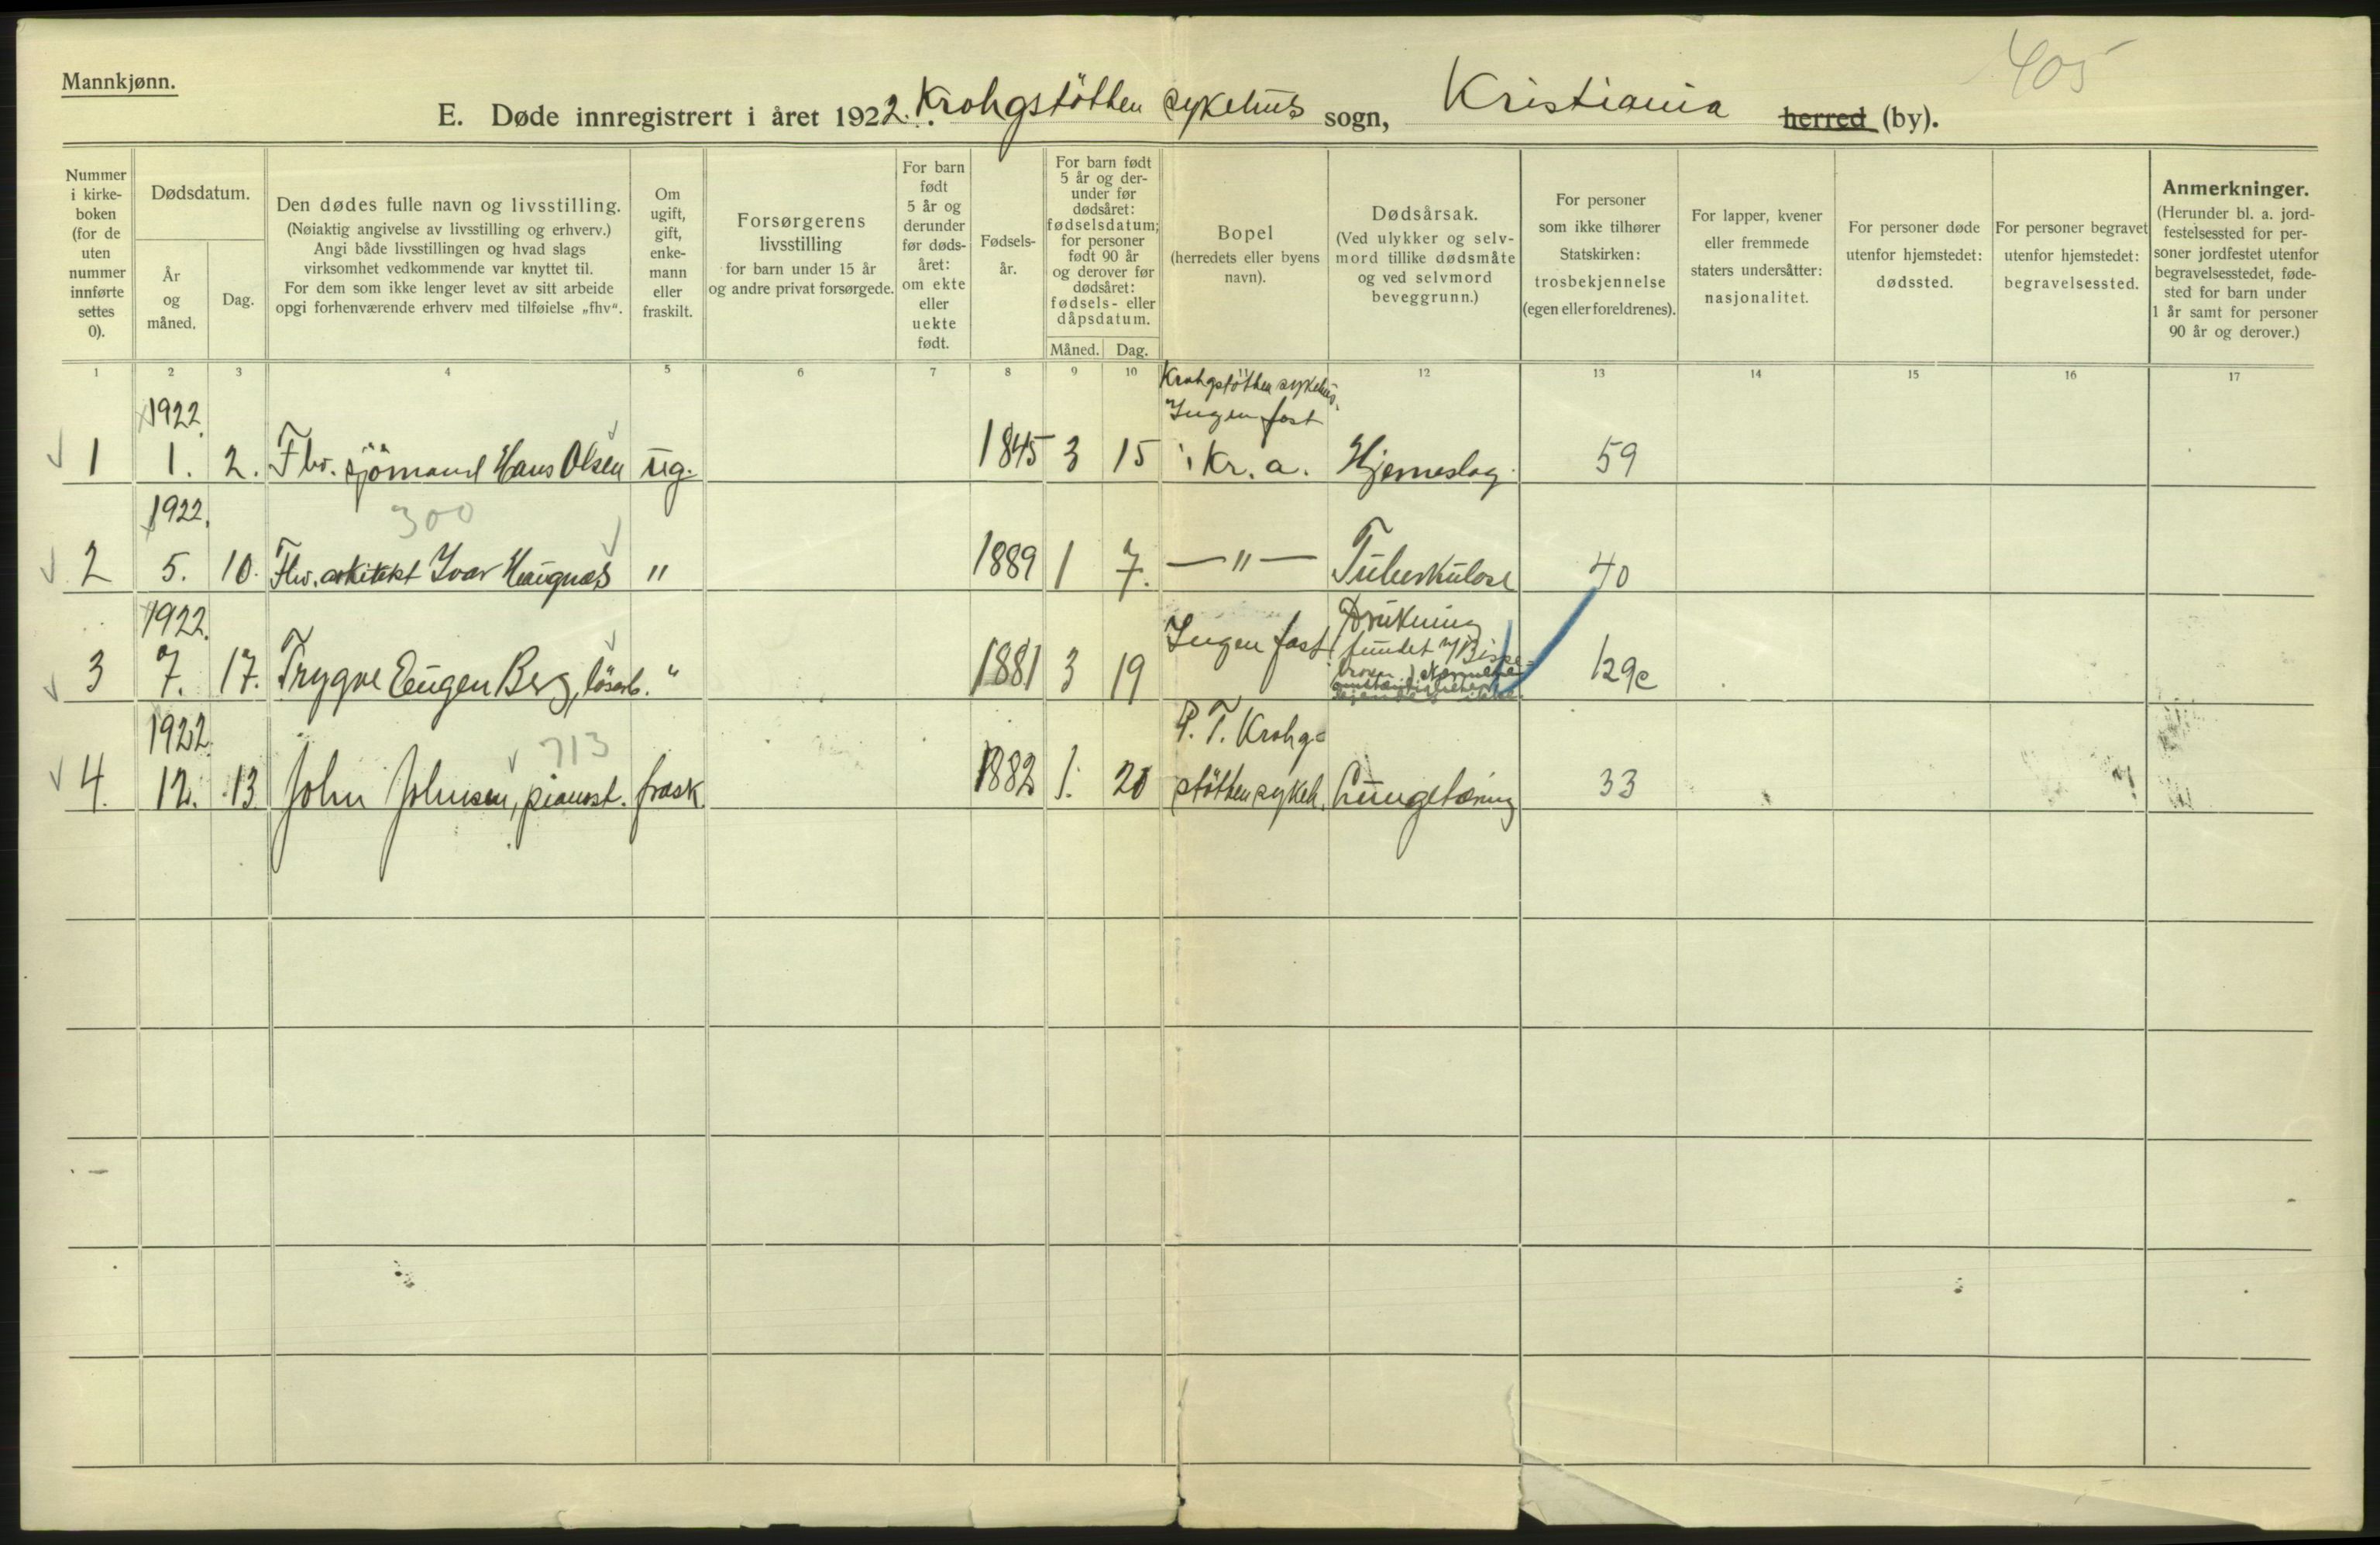 405
Mannkjønn.
E. Døde innregistrert i året 1922. Krohgstötten sykehus sogn, Kristiania herred (by).
Nummer
i kirke-
boken
(for de
uten
nummer
innførte
settes
0).
Dødsdatum.
År
og
måned.
Dag.
Den dødes fulle navn og livsstilling.
(Nøiaktig angivelse av livsstilling og erhverv.)
Angi både livsstillingen og hvad slags
virksomhet vedkommende var knyttet til.
For dem som ikke lenger levet av sitt arbeide
opgi forhenværende erhverv med tilføielse „fhv“.
Om
ugift,
gift,
enke-
mann
eller
fraskilt.
Forsørgerens
livsstilling
for barn under 15 år
og andre privat forsørgede.
For barn
født
5 år og
derunder
før døds-
året:
om ekte
eller
uekte
født.
Fødsels-
år.
For barn født
5 år og der-
under før
dødsåret:
fødselsdatum;
for personer
født 90 år
og derover før
dødsåret:
fødsels- eller
dåpsdatum.
Måned. Dag.
Bopel
(herredets eller byens
navn).
Dødsårsak.
(Ved ulykker og selv-
mord tillike dødsmåte
og ved selvmord
beveggrunn.)
For personer
som ikke tilhører
Statskirken:
trosbekjennelse
(egen eller foreldrenes).
For lapper, kvener
eller fremmede
staters undersåtter:
nasjonalitet.
For personer døde
utenfor hjemstedet:
dødssted.
For personer begravet
utenfor hjemstedet:
begravelsessted.
Anmerkninger.
(Herunder bl. a. jord-
festelsessted for per-
soner jordfestet utenfor
begravelsesstedet, føde-
sted for barn under
1 år samt for personer
90 år og derover.)
1 2 3 4 5 6 7 8 9 10 12 13 14 15 16 17
Krohgstötten sykehus.
1922. Ingen fast
1 1. 2. Fhv. sjömand Hans Olsen ug. 1845 3 15 i Kr. a. Hjerneslag. 59
1922. 300
2 5. 10. Fhv. arkitekt Ivar Haugnæs " 1889 1 7. —"— Tuberkulose 40
1922. Drukning
3 7. 17. Trygve Eugen Berg, lösarb. " 1881 3 19 Ingen fast fundet 129c
1922. 713 P. T. Krohg=
4. 12. 13. John Johnsen, pianost. frask. 1882 1. 20 stötten sykeh. Lungetæring 33